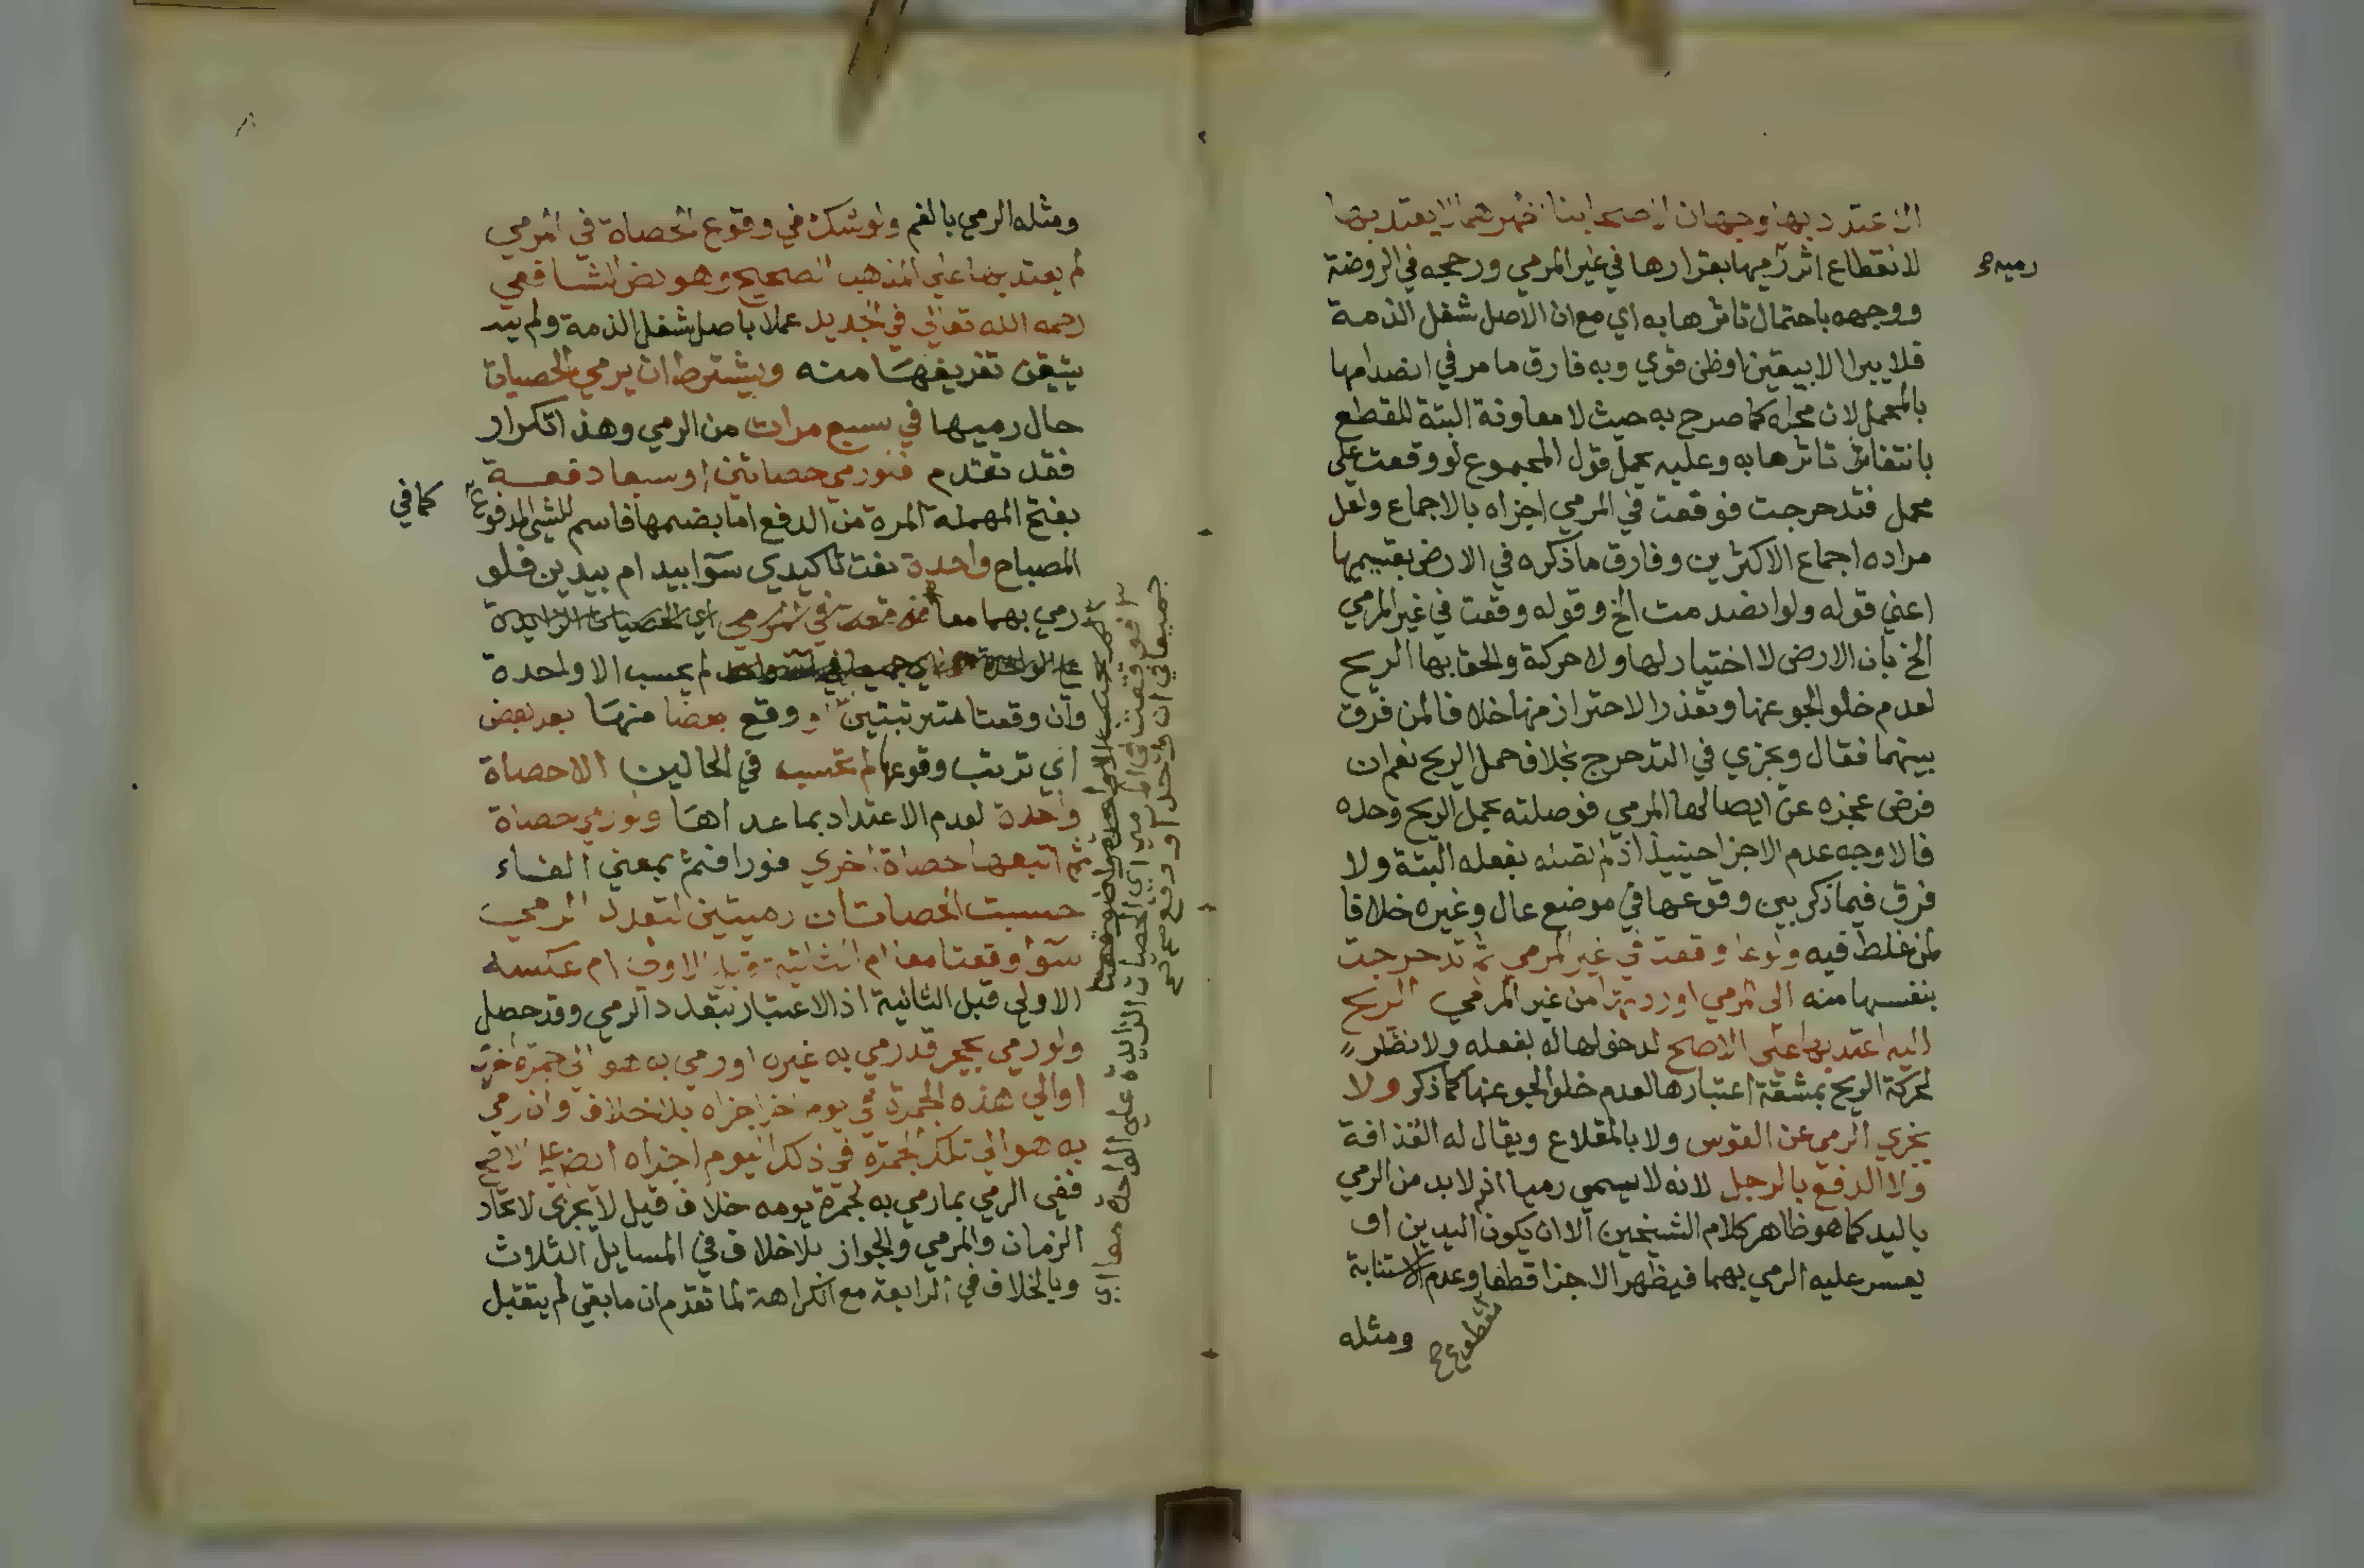 الاعتداد بها وجهان لاصحابنا اظهرهما لا يعتد بها
لانقطاع اثر رميها بقرارها في غير المرمي ورجحه في الروضة
رميه صح
ووجهه باحتمال تاثرها به اي مع ان الاصل شغل الذمة
فلا يبرا الا بيقين اوظن قوي وبه فارق ما مر في انصدامها
بالمحمل لان محله كما صرح به حيث لا معاونة البتة للقطع
بانتفاء تاثرها به وعليه يحمل قول المجموع لو وقعت على
محمل فتدحرجت فوقعت في المرمي اجزاه بالاجماع ولعل
مراده اجماع الاكثرين وفارق ما ذكره في الارض بقسميها
اعني قوله ولو انصدمت الخ وقوله وقعت في غير المرمي
الخ بان الارض لا اختيار لها ولا حركة والحق بها الريح
لعدم خلو الجو عنها وتعذر الاحتراز منها خلافا لمن فرق
بينهما فقال ويجزي في التدحرج بخلاف حمل الريح نعم ان
فرض عجزه عن ايصالها المرمي فوصلته بحمل الريح وحده
فالاوجه عدم الاجزا حينيذ اذ لم تصله بفعله البتة ولا
فرق فيما ذكر بين وقوعها في موضع عال وغيره خلافا
لمن غلط فيه ولو وقعت في غير المرمي ثم تدحرجت
بنفسها منه الى المرمي او ردتها من غير المرمي الريح
اليه اعتد بها على الاصح لدخولها له بفعله ولا نظر
لحركة الريح بمشقة اعتبارها لعدم خلو الجو عنها كما ذكر ولا
يجزي الرمي عن القوس ولا بالمقلاع ويقال له القذافة
ولا الدفع بالرجل لانه لا يسمى رميا اذ لا بد من الرمي
باليد كما هو ظاهر كلام الشيخين الا ان يكون اليدين او
يعسر عليه الرمي بهما فيظهر الاجزا قطعا وعدم الاستنابة
مقطوع صح
ومثله
ومثله الرمي بالفم ولو شك في وقوع الحصاة في المرمي
لم يعتد بها على المذهب الصحيح وهو نص الشافعي
رحمه الله تعالى في الجديد عملا باصل شغل الذمة ولم يبد
يتيقن تفريغها منه ويشترط ان يرمي الحصيات
حال رميها في سبع مرات من الرمي وهذا تكرار
فقد تقدم فلو رمي حصاتين او سبعا دفعة
بفتح المهملة المرة من الدفع اما بضمها فاسم للشي المدفوع
كما في
المصباح واحدة نعت تاكيدي سوا بيد ام بيدين فلو
رمي بهما معا فوقعت في المرمي اي الحصيات الزايدة
على الواحدة اي جميعا لم يحسب الا واحدة
وان وقعتا مترتبتين او وقع بعضا منها بعد بعض
اي ترتب وقوعها لم تحسب في الحالين الا حصاة
واحدة لعدم الاعتداد بما عداها ولو رمي حصاة
ثم اتبعها حصاة اخري فورا فثم بمعني الفاء
حسبت الحصاتان رميتين لتعدد الرمي
سوا وقعتا معا ام الثانية قبل الاولى ام عكسه
الاولي قبل الثانية اذ الاعتبار بتعدد الرمي وقد حصل
ولو رمي بحجر قد رمي به غيره او رمي به هو الى جمرة اخرى
او الي هذه الجمرة في يوم اخر اجزاه بلا خلاف وان رمي
به هو الى تلك الجمرة في ذلك اليوم اجزاه ايضا على الاصح
ففي الرمي بما رمي به لجمرة يومه خلاف قيل لا يجزي لاتحاد
الزمان والمرمي والجواز بلا خلاف في المسايل الثلاث
وبالخلاف في الرابعة مع الكراهة لما تقدم ان ما بقي لم يتقبل
فوقعت في المرمي اي الحصيات الزايدة على الواحدة معا اي
جميعا في ان واحد او وقع